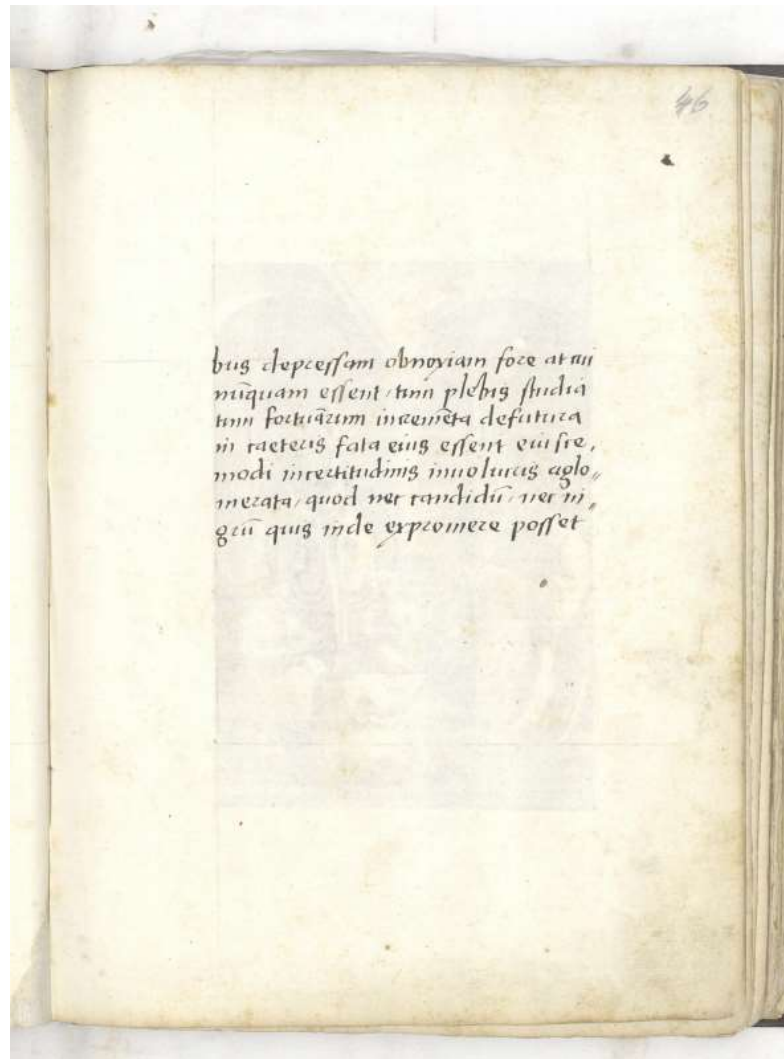 46
bus depressam obnoxiam fore at cui
nūquam essent, tum plebis studia
tum fortunarum incremēta defutura
in caeteris fata eius essent eiusce,
modi incertitudinis inuolucris aglo„
merata, quod nec candidū, nec ni„
grū quis inde expromere posset